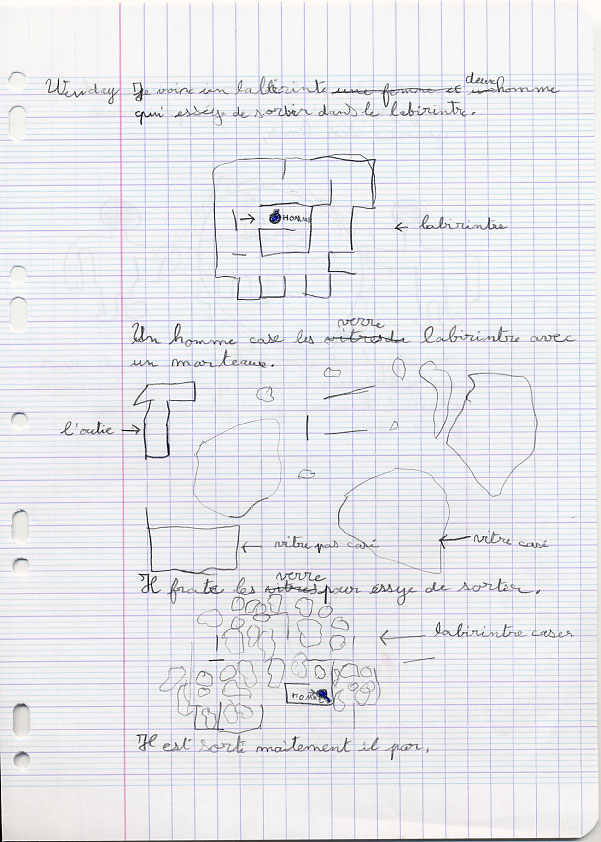 Wenday Je voix un labérinte une femme et un deux homme
qui esséye de sortir dans le labirintre.
HOMME
labirintre
Un homme case les vitres du verre labirintre avec
un marteaux.
l'outie
vitre pas casé
vitre casé
Il frate les vitres verre pour essye de sorter.
labirintre caser
HOMME
Il est sorté maitement il par.